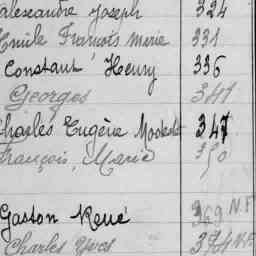 Alexandre Joseph 324
Emile François Marie 331
Constant Henry 336
Georges 341
Charles Eugène Modeste 347
François, Marie 350
Gaston René 369 N.F.
Charles Yves 3704 N.F.